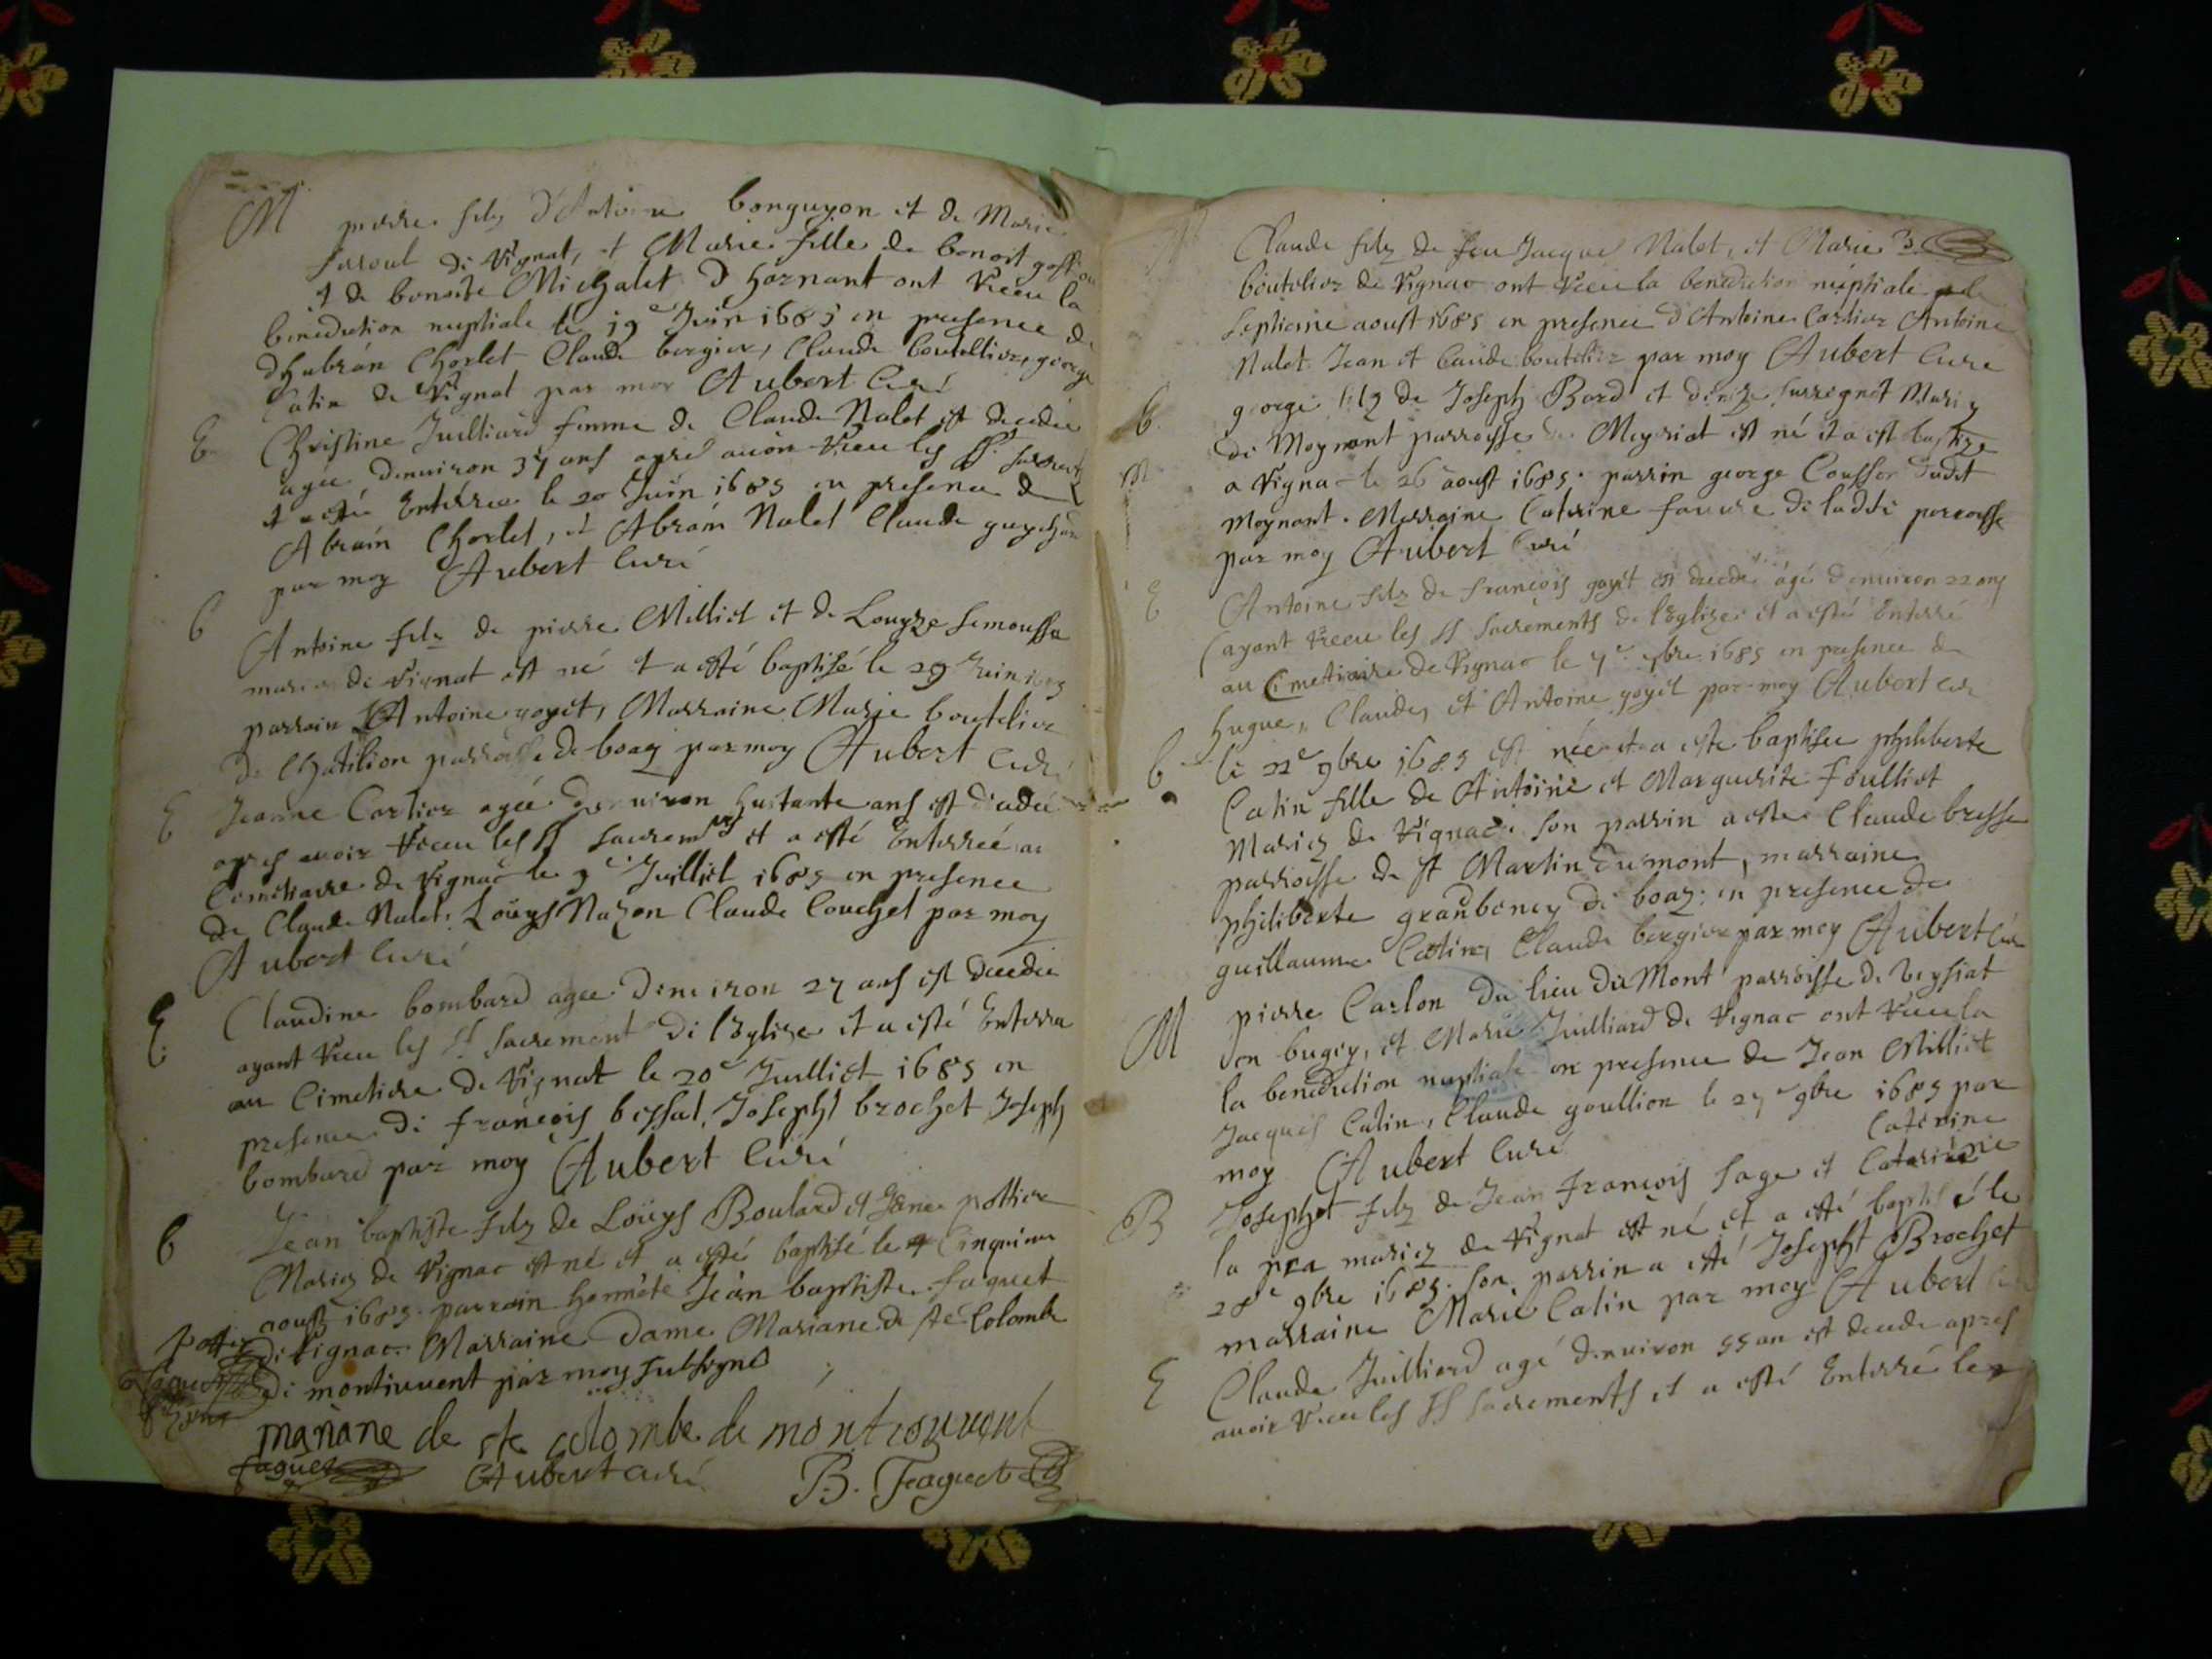 M pierre filz d'Antoine bonguyon et de Marie
de Vignat, et Marie fille de benoist
et de benoite Michalet D hoznant ont Receu la
benediction nuptiale le 19e Juin 1685 en presence de
dhabran Chorlet Claude bergier, Claude boutellier, george
Catin de Vignat par moy Aubert Curé
E Christine Juilliard femme de Claude Nalet est decedée
agee denuiron 37 ans apres auoir Receu les SS. sacrem
et a esté Enterrée le 20 Juin 1685 en presence de
Abrain Chorlet, et Abrain Nalet Claude guychar
par moy Aubert Curé
b Antoine filz de pierre Milliet et de Louyze
mariez de Vignat est né et a esté baptisé le 29 Juin
parrain Antoine goyet, Marraine Marie boutelier
de Chatilion parroisse de boaz par moy Aubert Curé
E Jeanne Cortier agée denuiron huitante ans est decedée
apres auoir Receu les SS sacremts et a esté Enterrée au
Cimetiaire de Vignac le 9e Juilliet 1685 en presence
de Claude Nalet. Loüys Nazon Claude Couchet par moy
Aubert Curé
E Claudine bombard agee denuiron 27 ans est decedée
ayant Receu les St Sacrement de l'Eglize et a esté Enterra
au Cimetiere de Vignat le 20e Juilliet 1685 en
presence de françois bessat, Josepht brochet Joseph
bombard par moy Aubert Curé
b Jean baptiste filz de Loüys Boulard et pottier
Mariez de Vignac est né et a esté baptisé le Cinquieme
aoust 1685. parrain honnéte Jean baptiste faguet
de Vignac. Marraine Dame Mariane de ste Colombe
de montiuuent par moy subsigné
mariane de ste colombe de montiouuent
faguet Aubert curé B. Faguet
Claude filz de feu Jacque Nalet, et Marie 3
boutelier de Vignac ont Receu la benediction nuptiale le
Septieme aoust 1685 en presence d'Antoine Cortier Antoine
Nalet Jean et Claude boutelier par moy Aubert Curé
b george filz de Joseph Bard et Mariez
de Moynant parroisse de Meyriat est né et a est baptize
a Vignac le 26 aoust 1685. parrin george Cousson dudit
Moynant. Marraine Caterine faucre de ladte parroisse
par moy Aubert Curé
E Antoine filz de françois goyet est decedé agé denuiron 22 ans
ayant Receu les SS Sacrements de l'Eglize et a esté Enterré
au Cimetiaire de Vignac le 7bre 1685 en presence de
hugue, Claude, et Antoine goyet par moy Aubert Cur
b le 22e 9bre 1685 est née et a este baptisee philiberte
Catin fille de Antoine et Marguerite foulliet
Mariez de Vignac. son parrin a este Claude bresse
parroisse de st Martin dumont, marraine
philiberte granboney de boaz: en presence de
guillaume Catin, Claude bergier par moy Aubert Cur
M pierre Carlon du lieu du Mont parroisse de Veysiat
en bugey, et Marie Juilliard de Vignac ont Receu la
la benediction nuptiale en presence de Jean Milliet
Jacques Catin, Claude goullion le 27e 9bre 1685 par
moy Aubert Curé
Caterine
B Josephet filz de Jean françois sage et Caterine
la mariez de Vignat est né et a esté baptisé le
28e 9bre 1685. son parrin a esté Josepht Brochet
marraine Marie Catin par moy Aubert
E Claude Juilliard agé denuiron 55 an est decede apres
auoir Receu les SS sacrements et a esté Enterré le